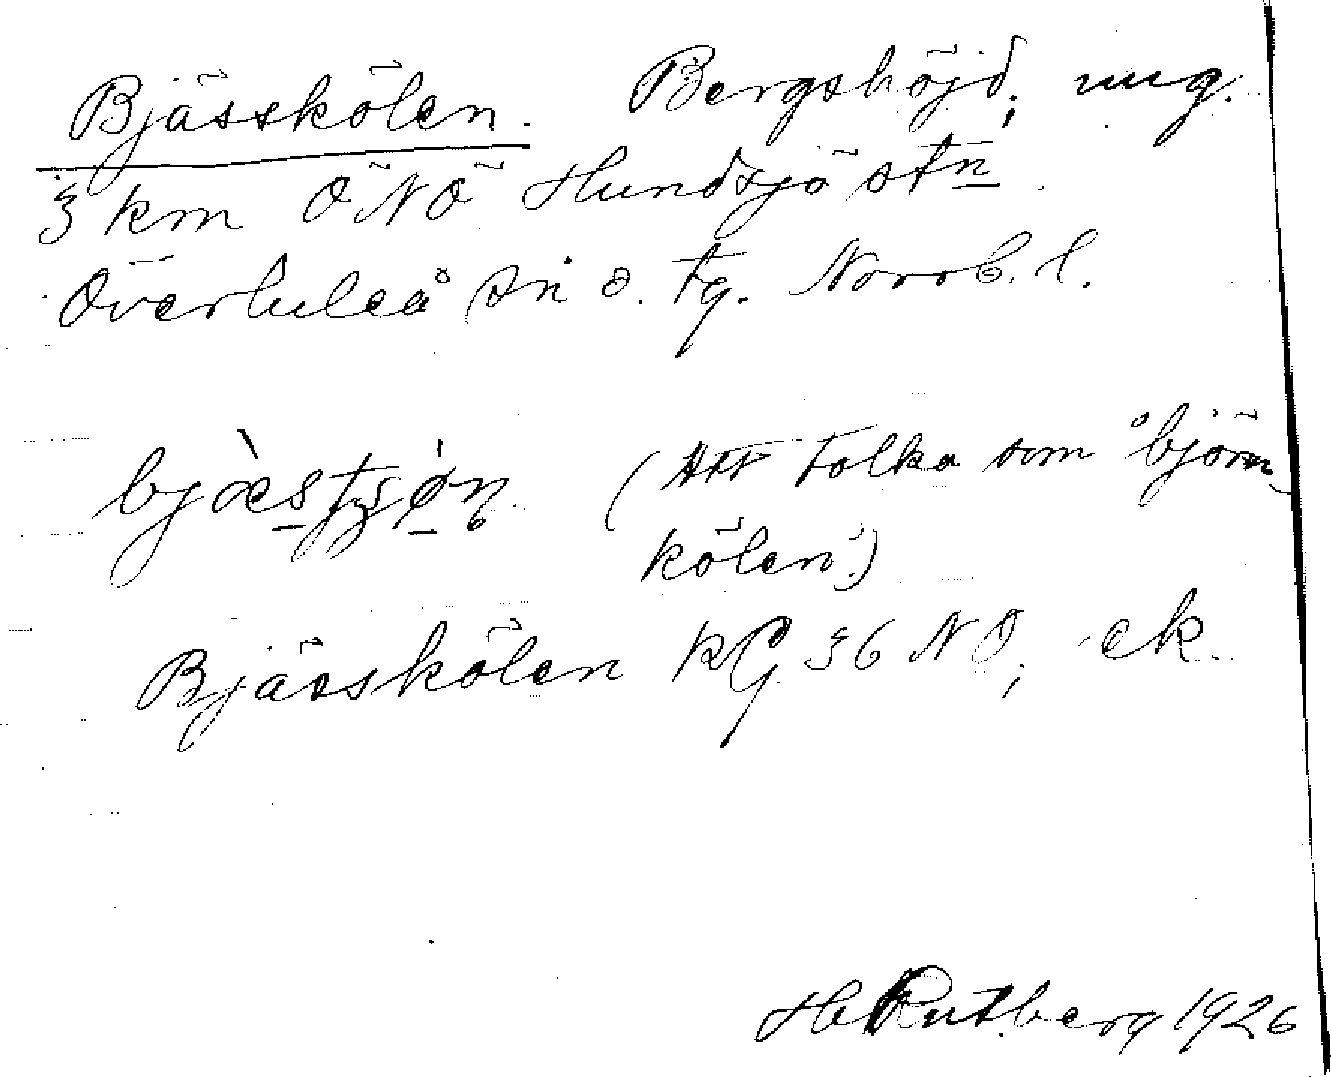 Bjässkölen. Bergshöjd, ung.
3 km ÖNÖ Hundsjö stn
Överluleå sn o. tg. Norrb. l.
(Att tolka som "björn
kölen")
Bjässkölen KG 36 NO, ek.
H Rutberg 1926